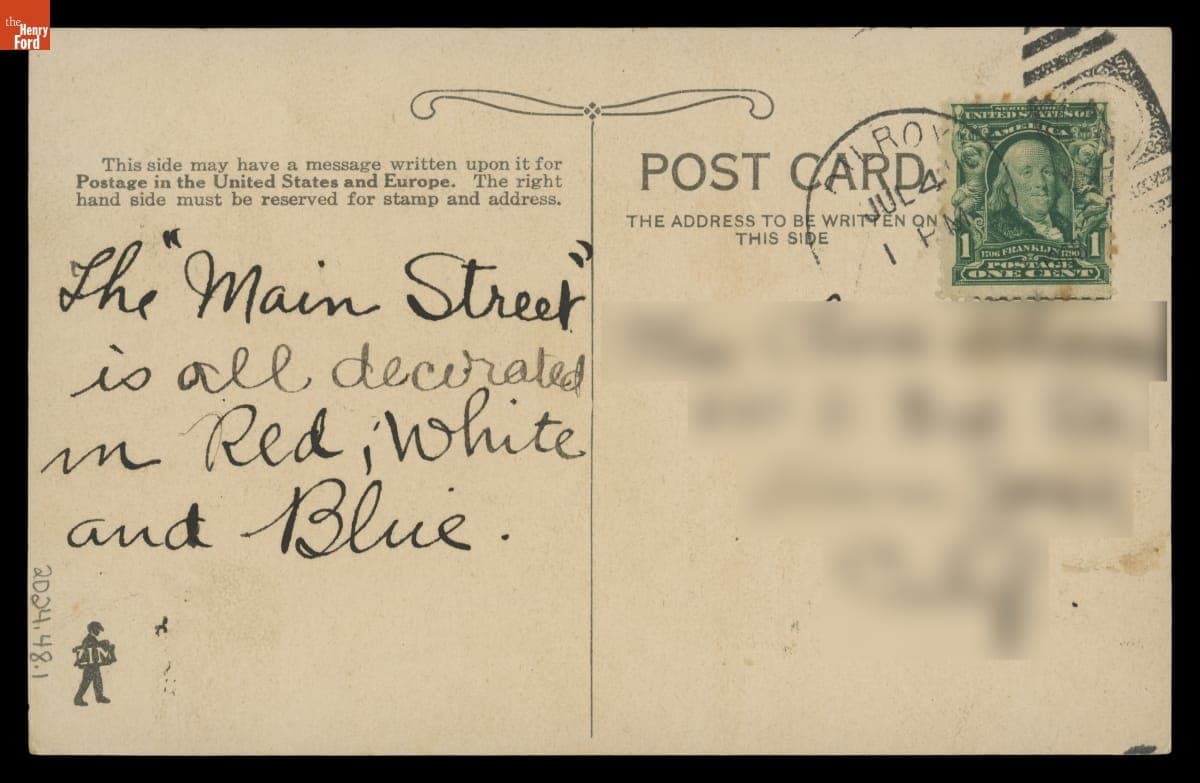 the
Henry
Ford
This side may have a message written upon it for
Postage in the United States and Europe. The right
hand side must be reserved for stamp and address.
POST CARD
THE ADDRESS TO BE WRITTEN ON
THIS SIDE
JUL 4
1 PM
UNITED STATES OF
AMERICA
1 1
1706 FRANKLIN 1790
POSTAGE
ONE CENT
The "Main Street"
is all decorated
in Red, White
and Blue.
2024.48.1
ZIM